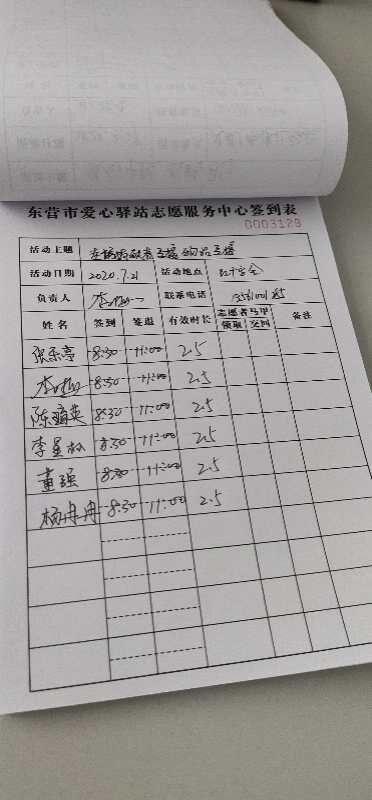 东营市爱心驿站志愿服务中心签到表
0003129
活动主题
活动日期 2020.7.21 活动地点 红十字会
负责人 联系电话
姓名 签到 签退 有效时长 志愿者马甲 备注
领取 交回
8:30 11:00 2.5
8:30 11:00 2.5
陈瑞英 8:30 11:00 2.5
李 8:30 11:00 2.5
董强 8:30 11:00 2.5
杨冉冉 8:30 11:00 2.5